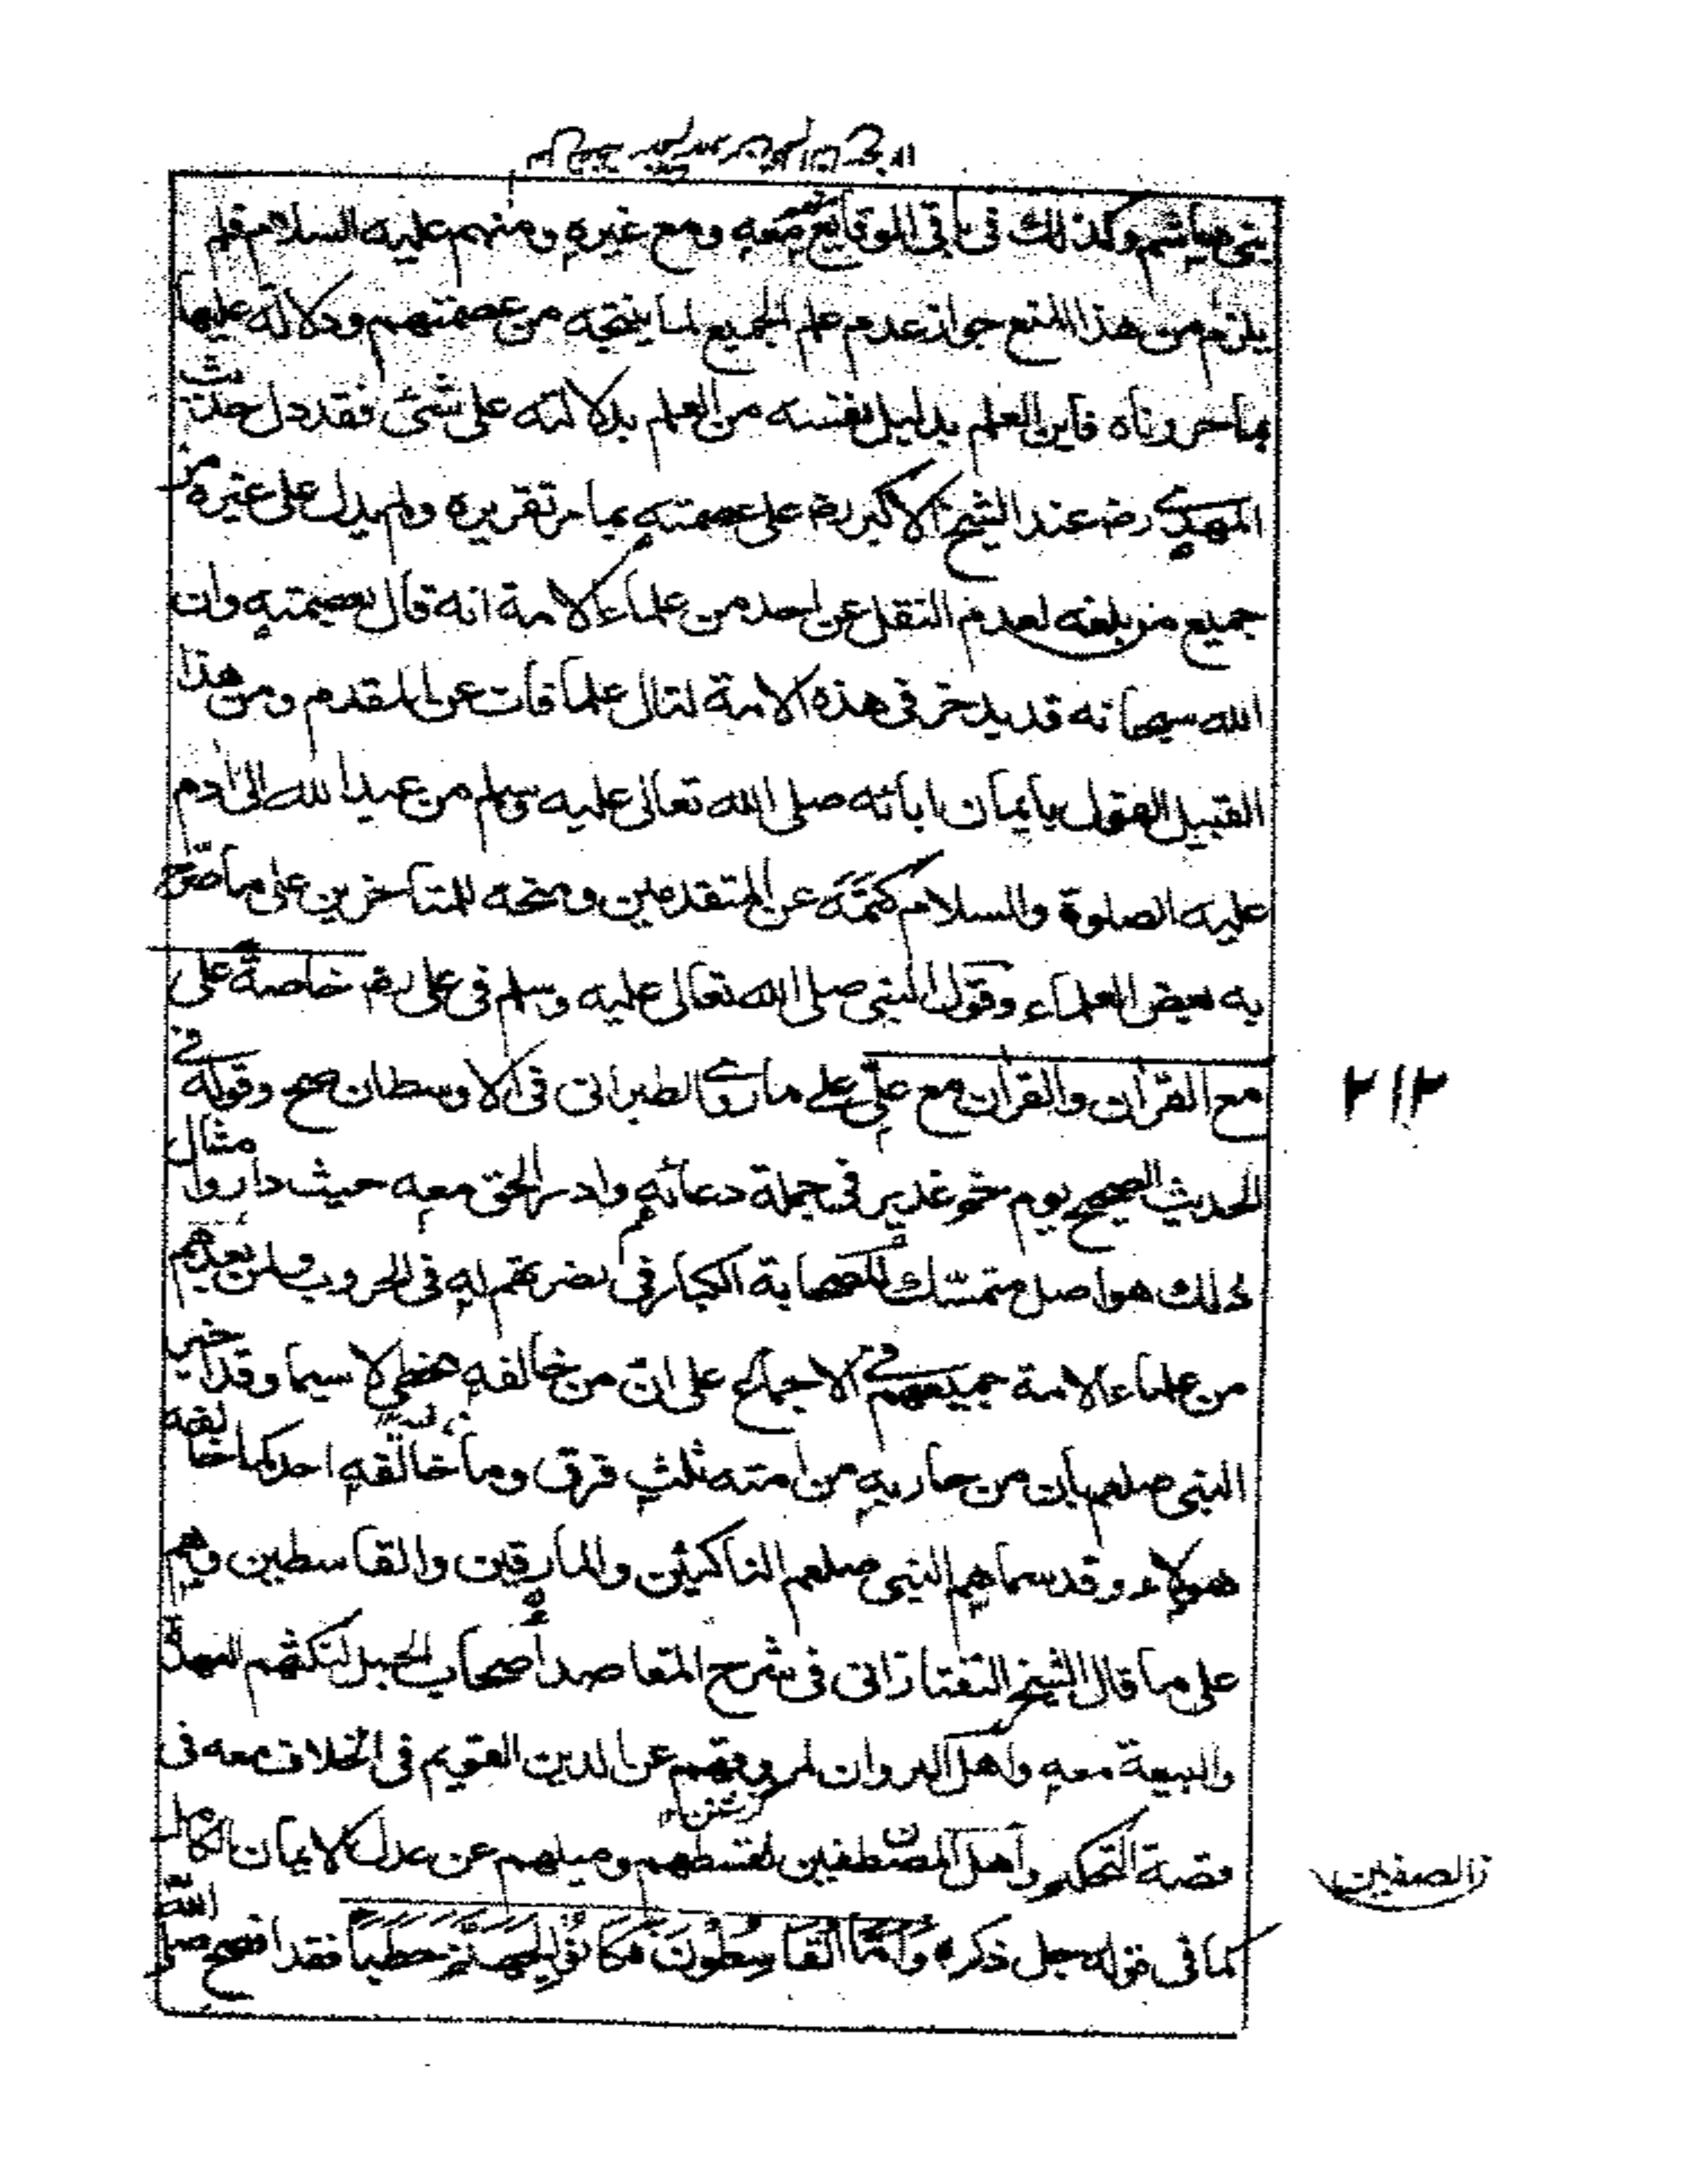 بنى هاشم وكذلك فى باقى الوقايع معه ومع غيره ومنهم عليه السلام فلم
يلزم من هذا المنع جواز عدم علم الجميع لما ينتجه من عصمتهم ودلالته عليها
بما حررناه فاين العلم بدليل نفسه من العلم بدلالته على شئ فقد دل حديث
المهدى رضـ عند الشيخ الاكبر رضـ على عصمته بما مر تقريره ولم يدل على غيره من
جميع من بلغه لعدم النقل عن احد من علماء الامة انه قال بعصمته وان
الله سبحانه قد يدخر فى هذه الامة لتال علما فات عن المقدم ومن هذا
القبيل القول بايمان ابائه صلى الله تعالى عليه وسلم من عبد الله الى ادم
عليه الصلوة والسلام كتمه عن المتقدمين ومنحه للمتاخرين على ما صرح
به بعض العلماء وقول النبى صلى الله تعالى عليه وسلم فى على رضـ خاصة على
مع القران والقران مع على على ما روى الطبرانى فى الاوسط ان صح وقوله فى
الحديث الصحيح يوم غدير فى جملة دعائه وادر الحق معه حيث دار وامثال
ذلك هو اصل متمسك للصحابة الكبار فى نصرتهم له فى الحروب ولمن بعدهم
من علماء الامة جميعهم فى الاجماع على ان من خالفه مخطى لا سيما وقد اخبر
النبى صلعم بان من حاربه من امته ثلث فرق وما خالفه احد كما خالفه
هولاء وقد سماهم النبى صلعم الناكثين والمارقين والقاسطين وهم
على ما قال الشيخ التفتازانى فى شرح المقاصد اصحاب الجمل لنكثهم العهد
والبيعة معه واهل النهروان لمروقهم عن الدين القويم فى الخلاف معه فى
قصة التحكيم واهل الصفين لقسطهم وميلهم عن عدل الايمان الكامل
كما فى قوله جل ذكره وَاَمَّا الْقَاسِطُونَ فَكَانُوا لِجَهَنَّمَ حَطَباً فقد افصح صلى الله
٢١٢
الصفين